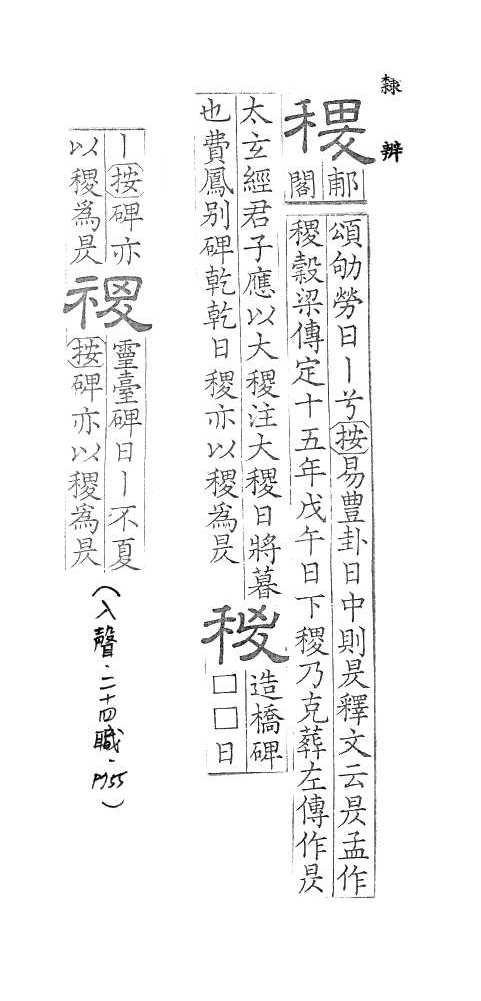 隸辨
稷
郙
閣
頌劬勞日丨兮按易豐卦日中則昃釋文云昃孟作
稷穀梁傳定十五年戊午日下稷乃克葬左傳作昃
太玄經君子應以大稷注大稷日將暮
也費鳳別碑乾乾日稷亦以稷為昃
稷
造橋碑
□□日
丨按碑亦
以稷為昃
稷
靈臺碑日丨不夏
按碑亦以稷為昃
(入聲·二十四職·P755)